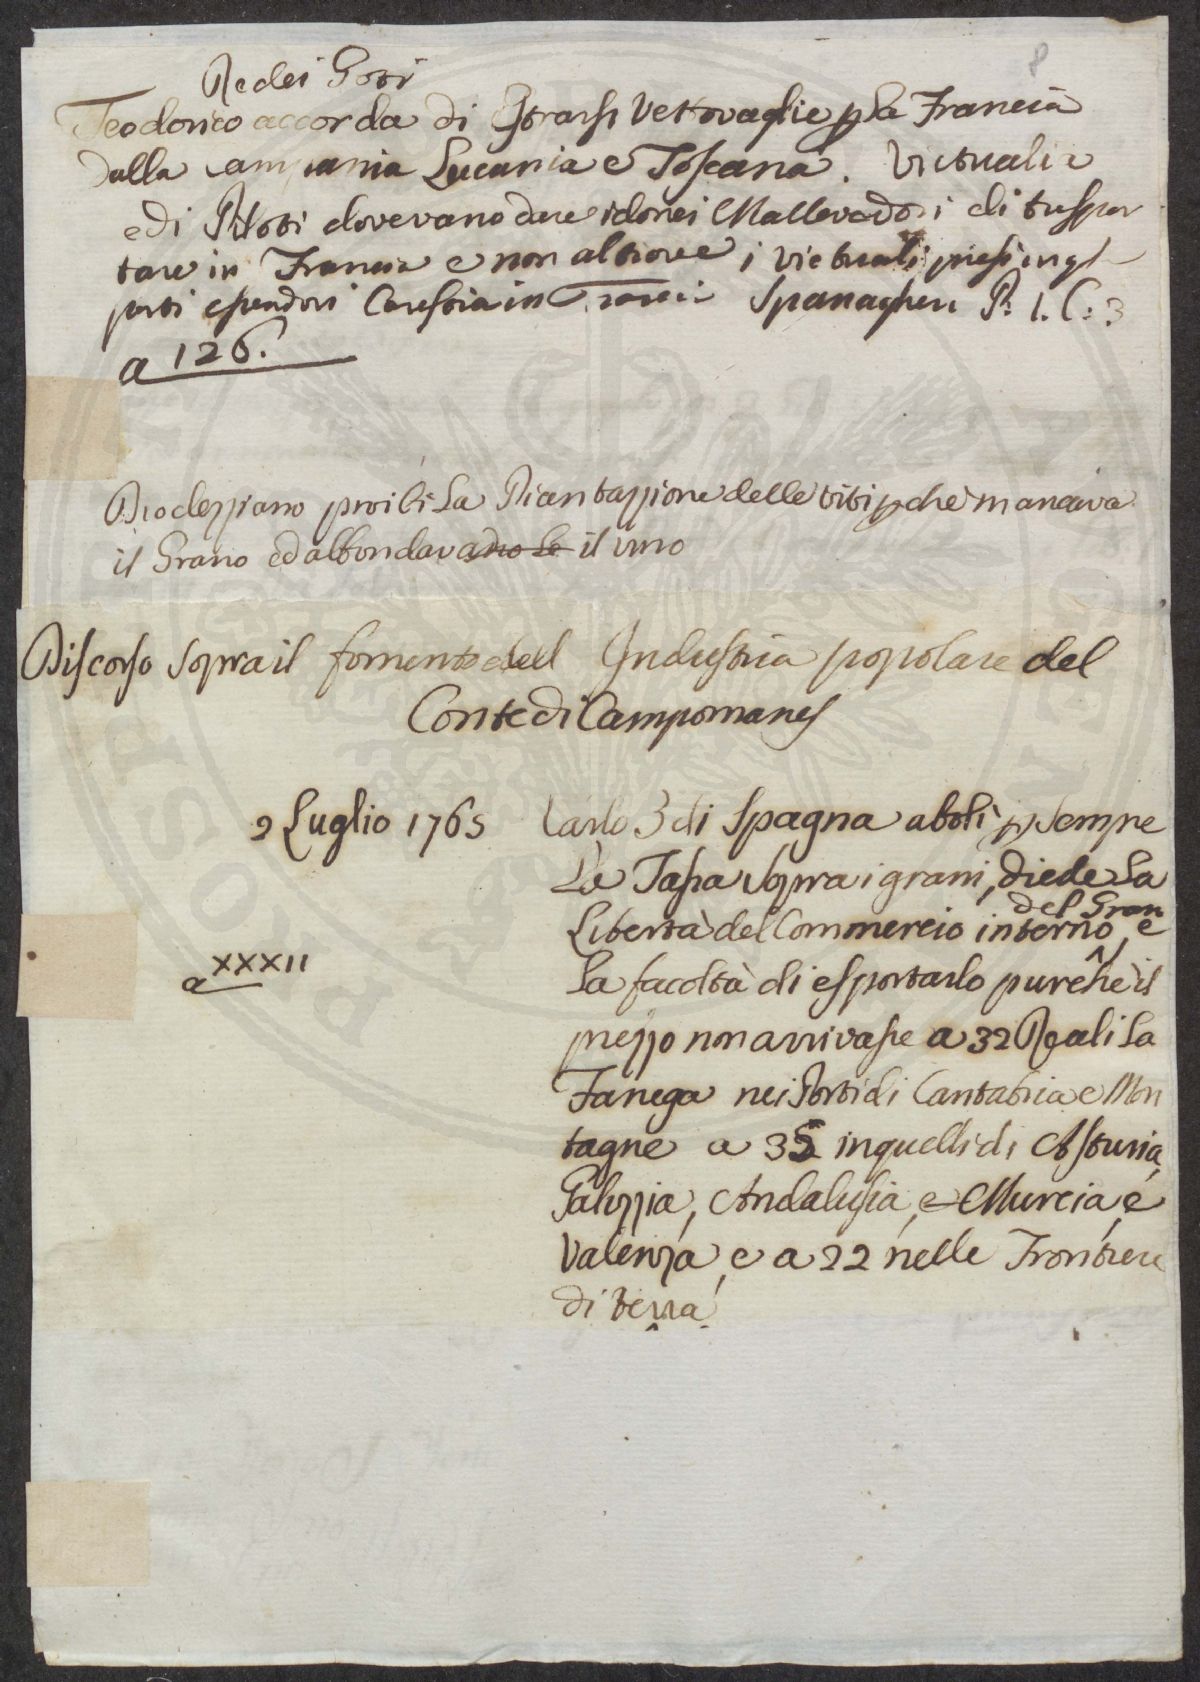 8
Re dei Goti
Teodorico accorda di Estrarsi Vettovaglie p la Francia
dalla Campania Lucania e Toscana. Victualia
e di Piloti dovevano dare idonei Mallevadori di traspor
tare in Francia e non altrove i victuali presi in
porti essendovi Carestia in Francia Spanagheri P. 1. C: 3
a 126.
Diocleziano proibì la Piantazzione delle viti pche mancava
il Grano ed abbondava il vino
Discorso sopra il fomento dell Industria popolare del
Conte di Campomanes
9 Luglio 1765 Carlo 3 di Spagna abolì p sempre
La Tassa sopra i grani, diede la
Libertà del Commercio interno del Gran e
a XXXII la facoltà di esportarlo purchè il
prezzo non arrivasse a 32 Reali la
Fanega nei Porti di Cantabria e Mon
tagne a 35 in quelli di Asturia,
Galizzia, Andalusia, e Murcia, e
Valenza, e a 22 nelle Frontiere
di terra.